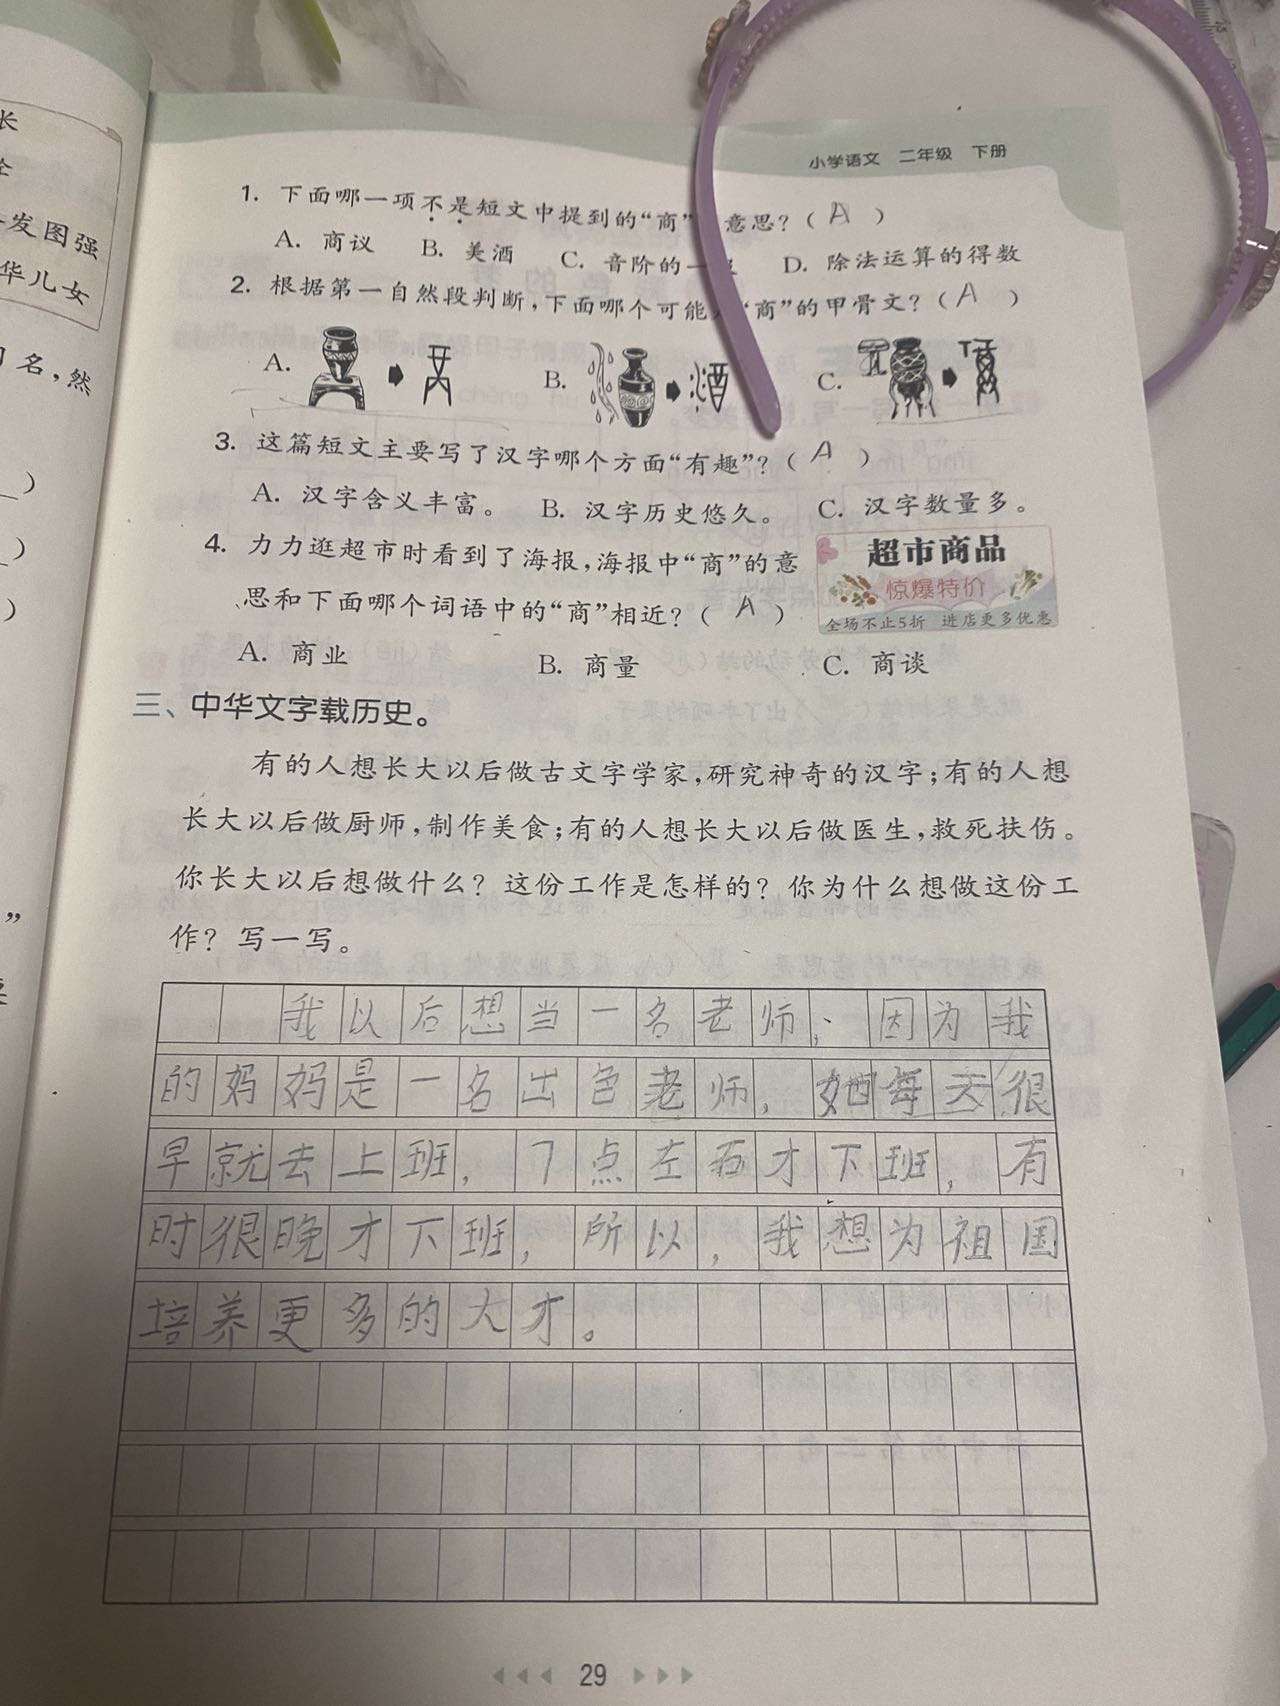 长
全
发图强
华儿女
名,然
)
)
)
”
小学语文 二年级 下册
1. 下面哪一项不是短文中提到的“商” 意思?( A )
A. 商议 B. 美酒 C. 音阶的一 D. 除法运算的得数
2. 根据第一自然段判断,下面哪个可能 “商”的甲骨文?( A )
A. B. C.
3. 这篇短文主要写了汉字哪个方面“有趣”?( A )
A. 汉字含义丰富。 B. 汉字历史悠久。 C. 汉字数量多。
4. 力力逛超市时看到了海报,海报中“商”的意
思和下面哪个词语中的“商”相近?( A )
超市商品
惊爆特价
全场不止5折 进店更多优惠
A. 商业 B. 商量 C. 商谈
三、中华文字载历史。
有的人想长大以后做古文字学家,研究神奇的汉字;有的人想
长大以后做厨师,制作美食;有的人想长大以后做医生,救死扶伤。
你长大以后想做什么? 这份工作是怎样的? 你为什么想做这份工
作? 写一写。
我以后想当一名老师,因为我
的妈妈是一名出色老师,她每天很
早就去上班,7点左右才下班,有
时很晚才下班,所以,我想为祖国
培养更多的大才。
29